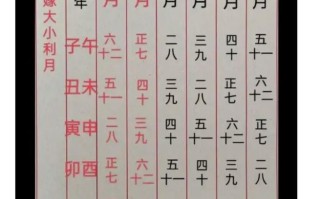 嫁大小利月
年 月 月 月 月 月 月
子午 六十二 正七 二八 三九 四十 五十一
丑未 五十一 四十 三九 二八 正七 六十二
寅申 二八 三九 四十 五十一 六十二 正七
卯酉 正七 六十二 五十一 四十 三九 二八